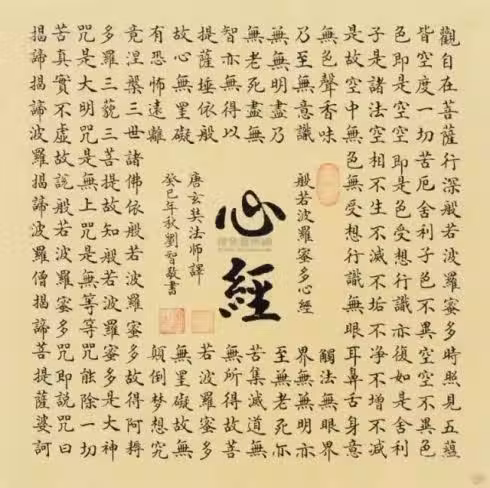 觀自在菩薩行深般若波羅蜜多時照見五蘊
皆空度一切苦厄舍利子色不異空空不異色
色即是空空即是色受想行識亦復如是舍利
子是諸法空相不生不滅不垢不淨不增不減
是故空中無色無受想行識無眼耳鼻舌身意
無色聲香味
觸法無眼界
乃至無意識
界無無明亦
無無明盡乃
至無老死亦
無老死盡無
苦集滅道無
智亦無得以
無所得故菩
提薩埵依般
若波羅蜜多
故心無罣礙
無罣礙故無
有恐怖遠離
顛倒梦想究
竟涅槃三世諸佛依般若波羅蜜多故得阿耨
多羅三藐三菩提故知般若波羅蜜多是大神
咒是大明咒是無上咒是無等等咒能除一切
苦真實不虛故說般若波羅蜜多咒即說咒曰
揭諦揭諦波羅揭諦波羅僧揭諦菩提薩婆訶
般若波羅蜜多心經
心經
唐玄奘法師譯
癸巳年秋劉智敬書